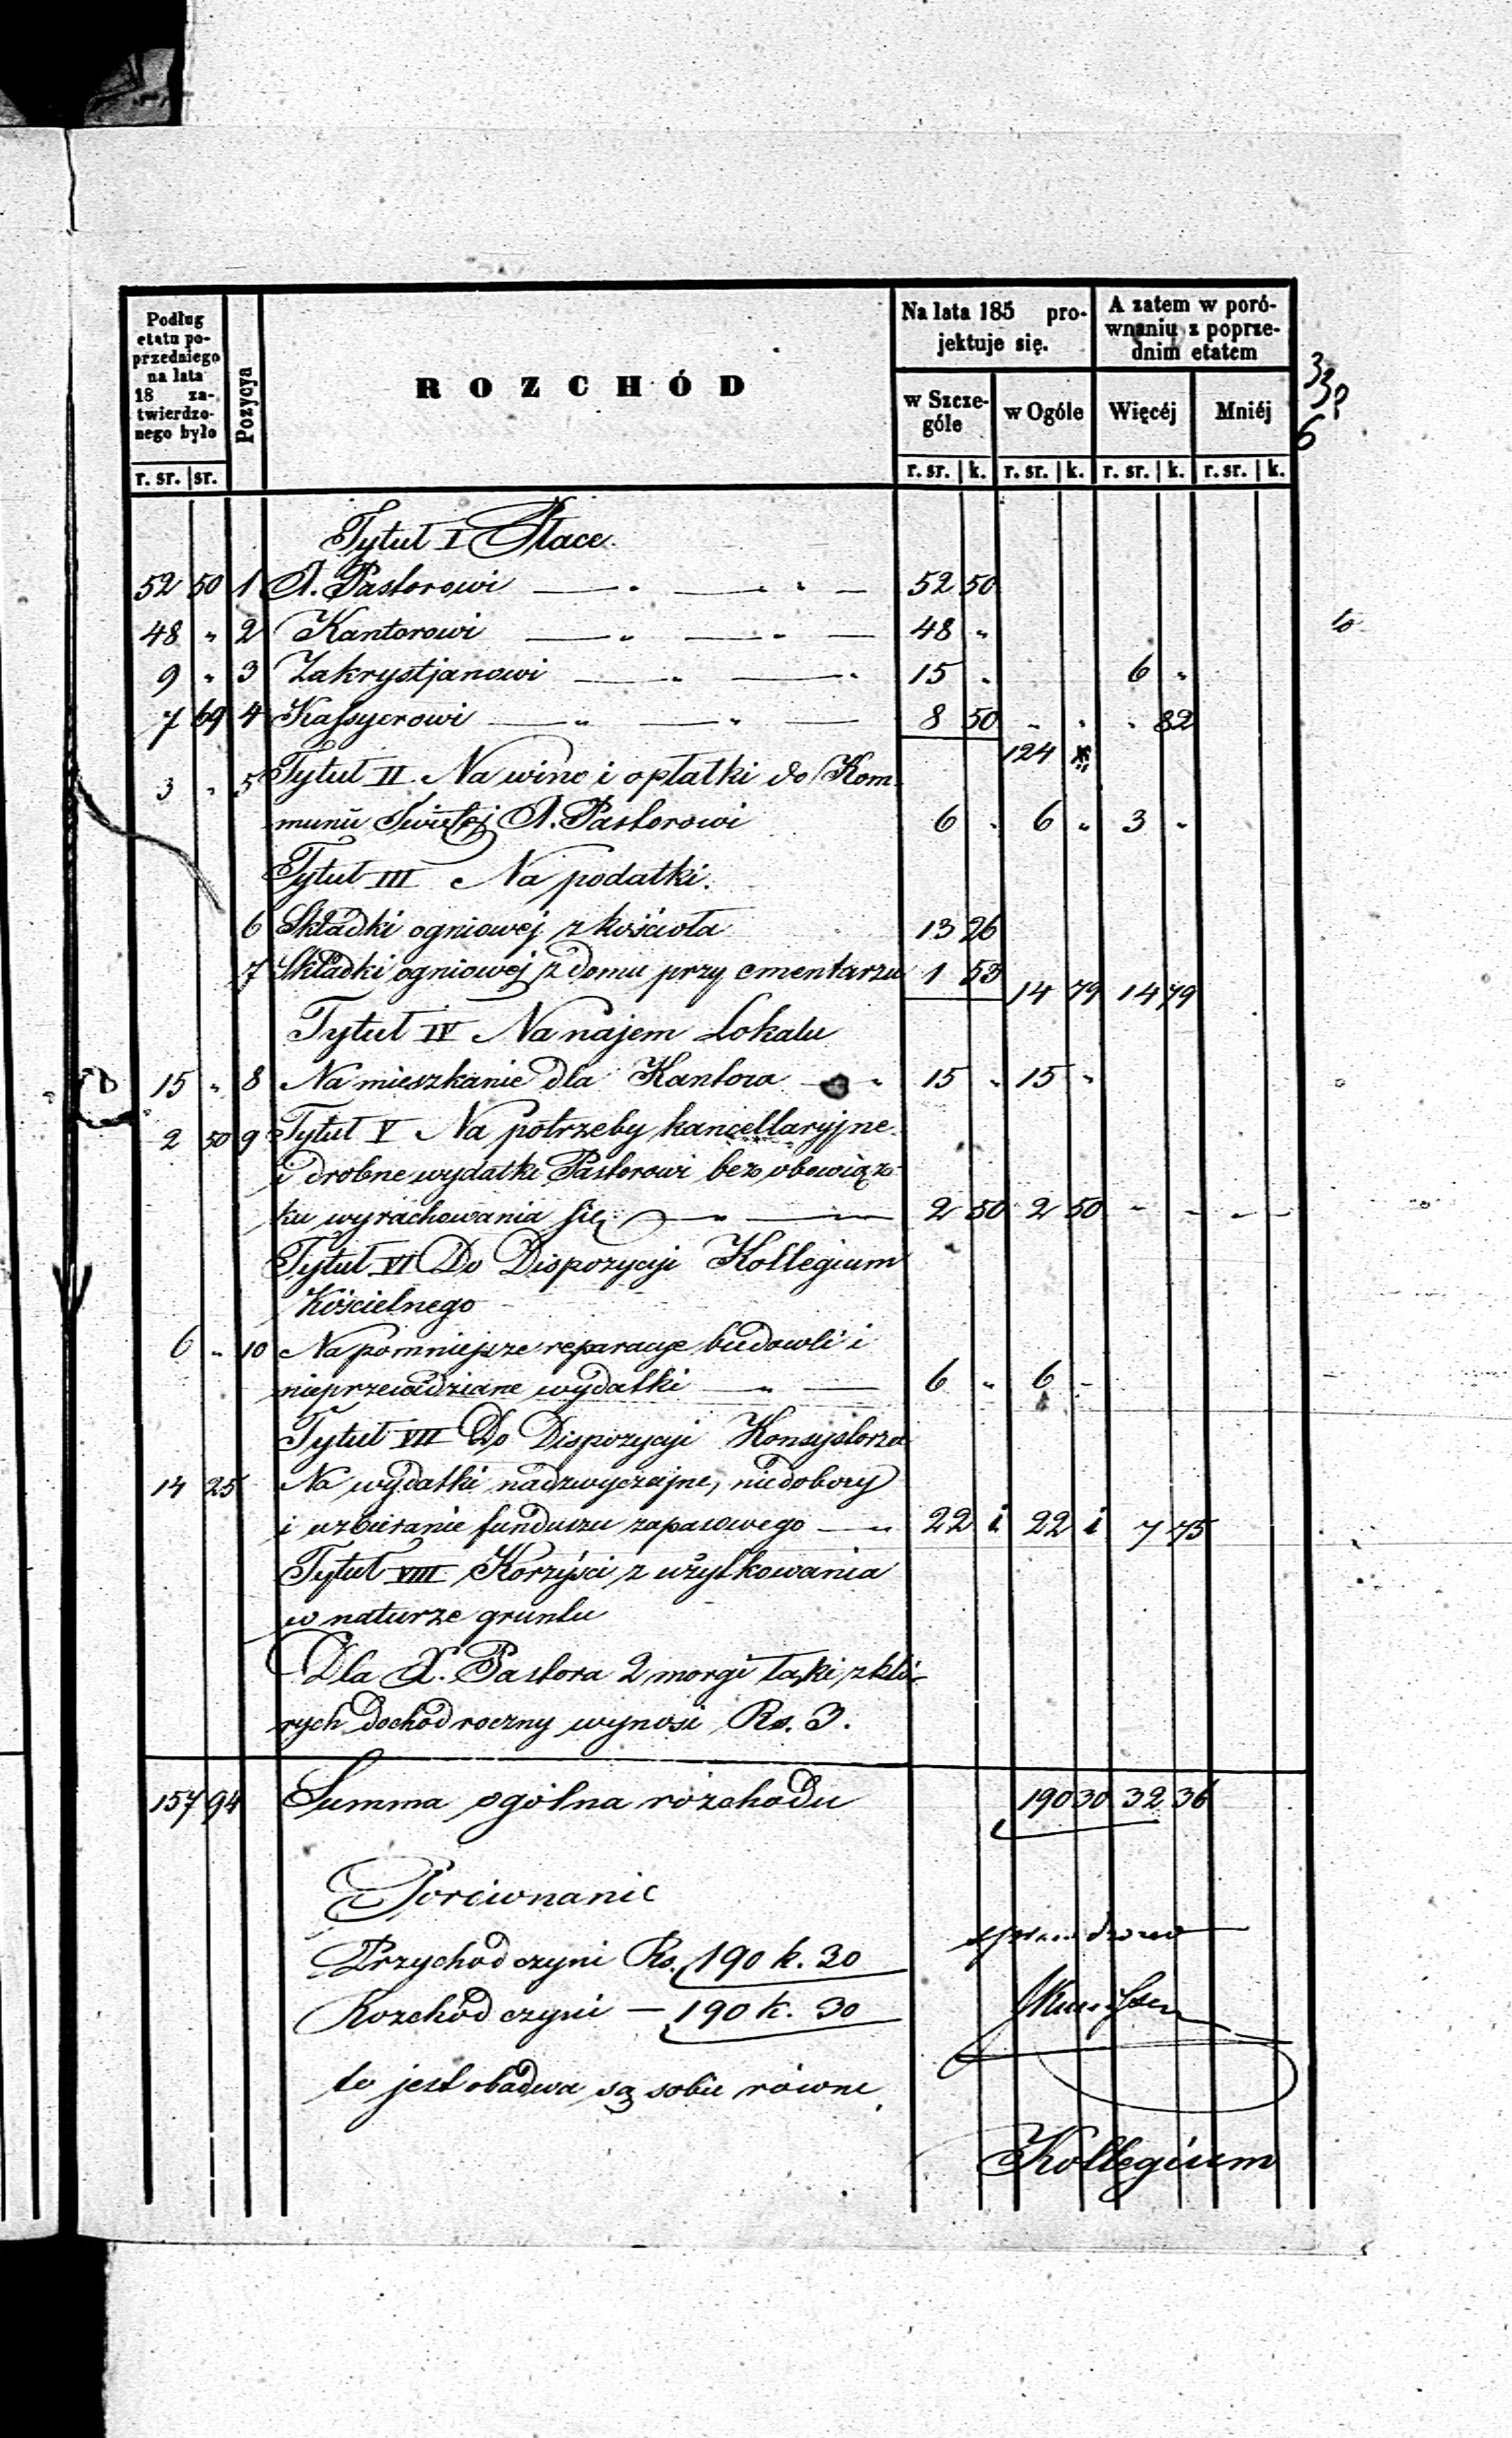 Podług
etatu po-
przedniego
na lata
18 za-
twierdzo-
nego było
r. sr. sr.
Pozycya
ROZCHÓD
Na lata 185 pro-
jektuje się.
w Szcze-
góle
w Ogóle
r. sr. k. r. sr. k.
A zatem w poró-
wnaniu z poprze-
dnim etatem
Więcéj Mniéj
r. sr. k. r. sr. k.
6
Tytuł I Płace.
52 50 1 X. Pastorowi — " — " — 52 50
48 " 2 Kantorowi — " — " — 48 "
9 " 3 Zakrystjanowi — " — " 15 " 6 "
7 69 4 Kassyerowi — " — " — 8 50 " " " 82
124 "
3 " 5 Tytuł II Na wino i opłatki do Kom-
munii Świętej X. Pastorowi 6 " 6 " 3 "
Tytuł III Na podatki.
6 Składki ogniowej z kościoła 13 26
7 Składki ogniowej z domu przy cmentarzu 1 53 14 79 14 79
Tytuł IV Na najem Lokalu
15 " 8 Na mieszkanie dla Kantora — " 15 " 15 "
2 50 9 Tytuł V Na potrzeby kancellaryjne
i drobne wydatki Pastorowi bez obowiąz-
ku wyrachowania się — " — 2 50 2 50 - - - -
Tytuł VI Do Dispozycyi Kollegium
Kościelnego
6 " 10 Na pomniejsze reparacye budowli i
nieprzewidziane wydatki — " — 6 " 6 -
Tytuł VII Do Dispozycyi Konsystorza
14 25 Na wydatki nadzwyczajne, niedobory
i uzbieranie funduszu zapasowego — " 22 i 22 i 7 75
Tytuł VIII Korzyści z użytkowania
w naturze gruntu
Dla X. Pastora 2 morgi łąki z któ-
rych dochód roczny wynosi Rs. 3.
157 94 Summa ogólna rozchodu 190 30 32 36
Porównanie
Przychód czyni Rs. 190 k. 30
Rozchód czyni — 190 k. 30
to jest obadwa są sobie równe.
Kollegium